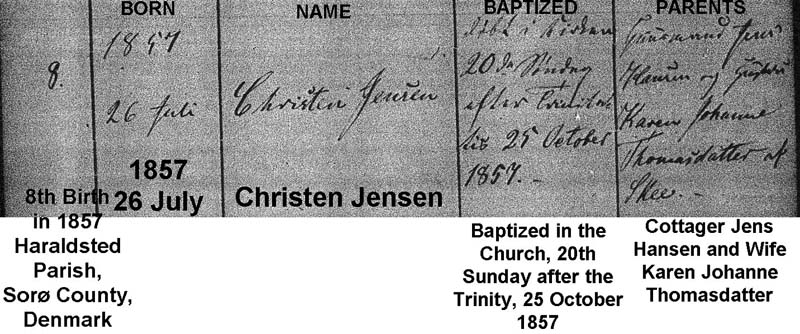 BORN
NAME
BAPTIZED
PARENTS
8.
1857
26 Juli
Christen Jensen
døbt i Kirken
20de Søndag
efter Trinita-
tis 25 October
1857.-
Huusmand Jens
Hansen og Hustru
Karen Johanne
Thomasdatter af
Skee.-
8th Birth
in 1857
Haraldsted
Parish,
Sorø County,
Denmark
1857
26 July
Christen Jensen
Baptized in the
Church, 20th
Sunday after the
Trinity, 25 October
1857
Cottager Jens
Hansen and Wife
Karen Johanne
Thomasdatter